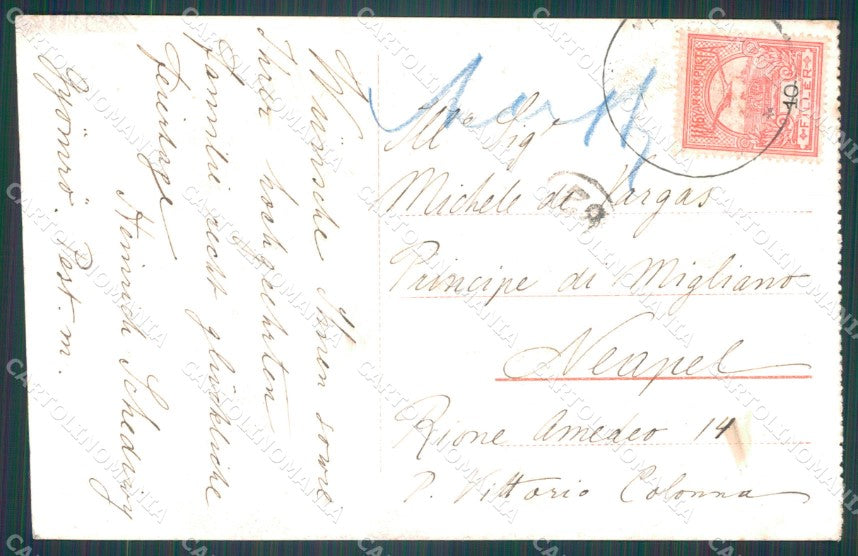 Wünsche Ihnen sowie
Ihrer hochgeehrten
Familie recht glückliche
Feiertage
Heinrich
Gyömrő. Pest. m.
Ill.mo Sig.r
Michele de Vargas
Principe di Migliano
Neapel
Rione Amedeo 14
P. Vittorio Colonna
MAGYAR KIR. POSTA
10
FILLER
CARTOLINOMANIA